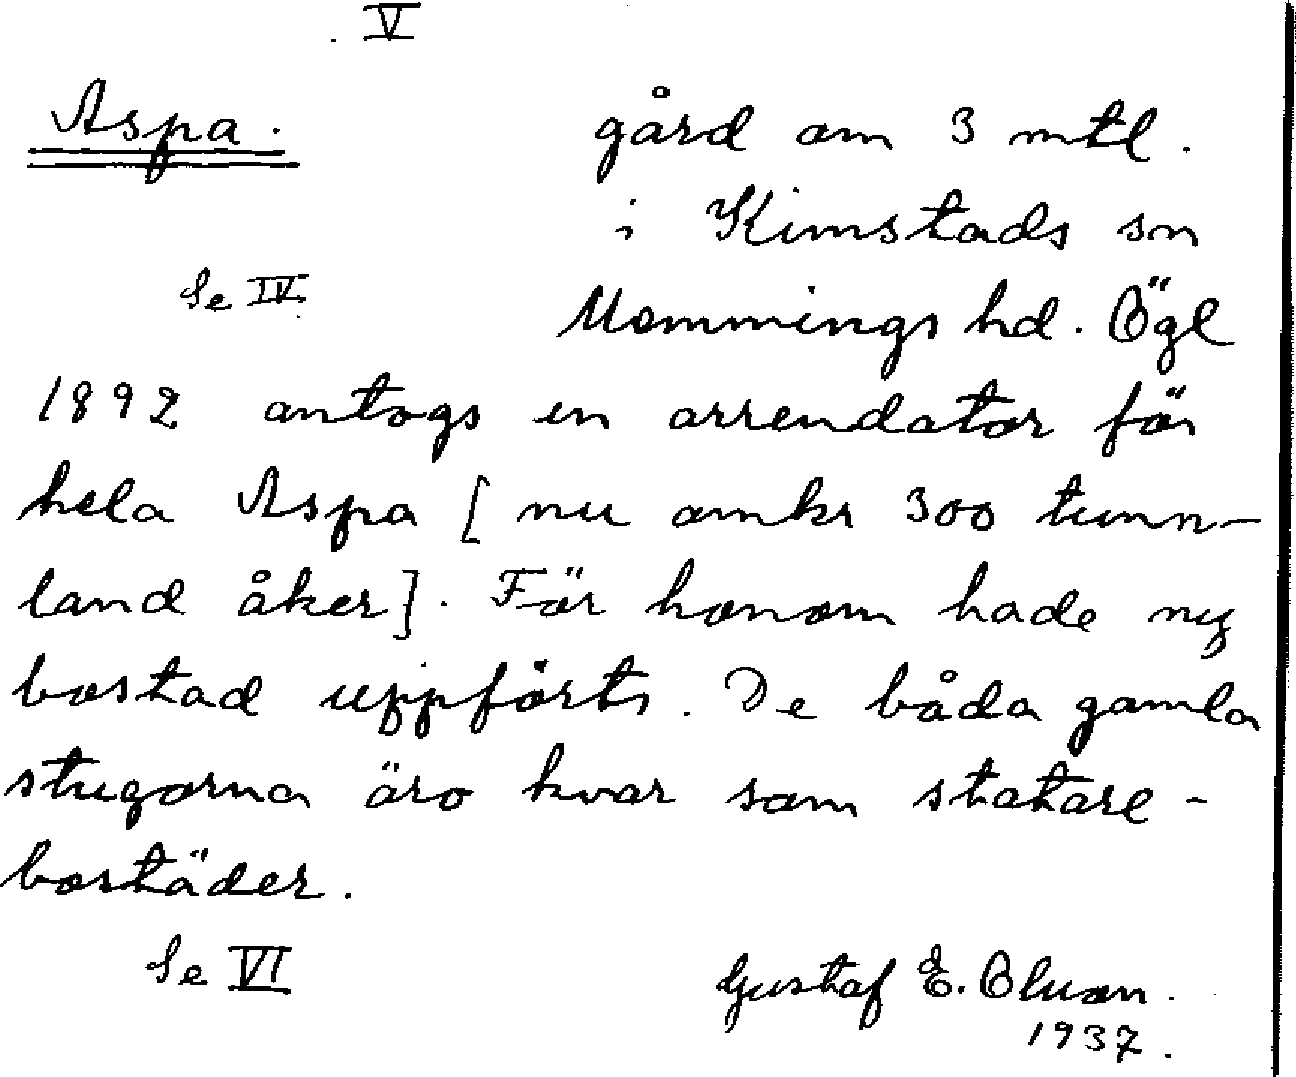 V
Aspa. gård om 3 mtl.
i Kimstads sn
Se IV. Memmings hd. Ögl
1892 antogs en arrendator för
hela Aspa [nu omkr 300 tunn-
land åker]. För honom hade ny
bostad uppförts. De båda gamla
stugorna äro kvar som statare-
bostäder.
Se VI Gustaf E.
1937.